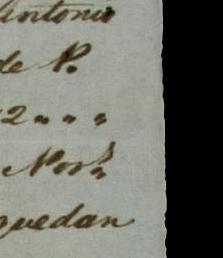 Antonio
de P.
2 " " "
Nov.e
quedan